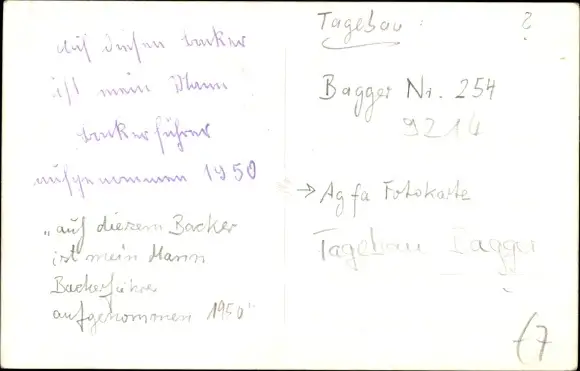 auf diesen backer
ist mein Mann
backerführer
aufgenommen 1950
„auf diesem Backer
ist mein Mann
Backerführer
aufgenommen 1950"
Tagebau : ?
Bagger Nr. 254
9214
→ Agfa Fotokarte
Tagebau Bagger
(7